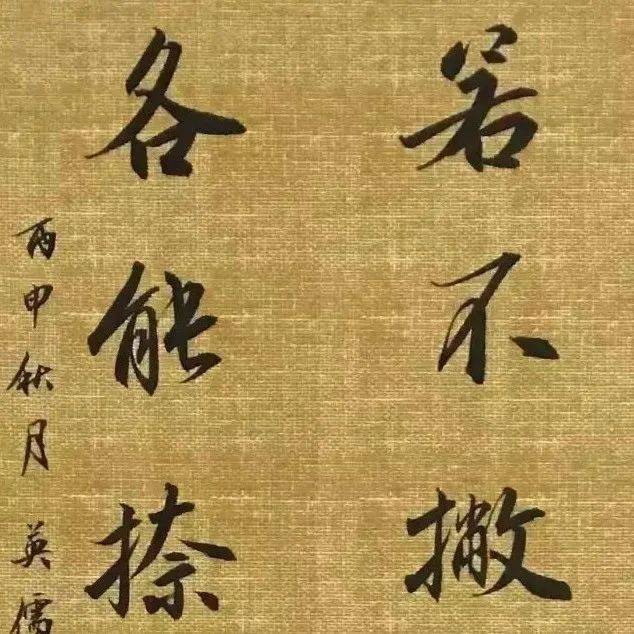 若不撇
各能捺
丙申秋月英儒